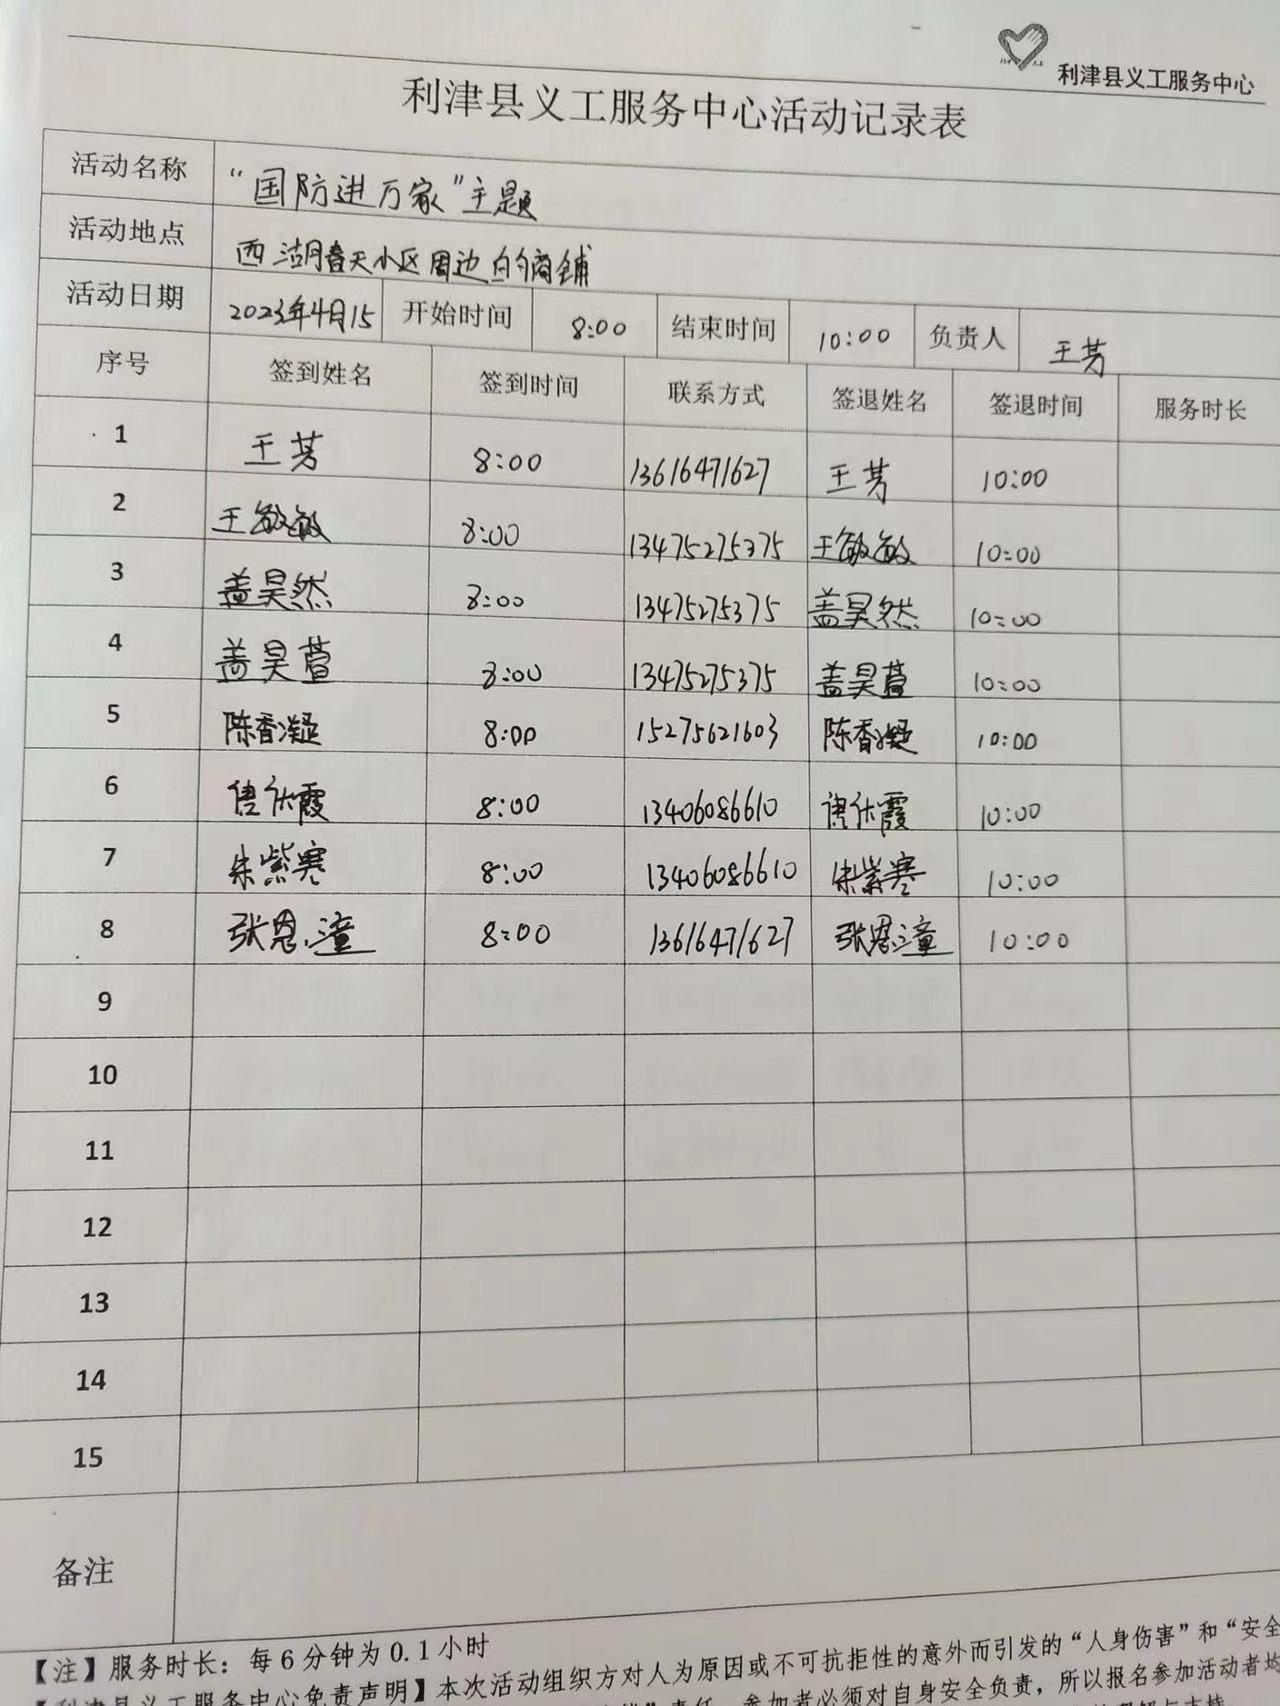 利津县义工服务中心
利津县义工服务中心活动记录表
活动名称 “国防进万家”主题
活动地点 西湖春天小区周边的商铺
活动日期 2023年4月15 开始时间 8:00 结束时间 10:00 负责人 王芳
序号 签到姓名 签到时间 联系方式 签退姓名 签退时间 服务时长
1 王芳 8:00 13616471627 王芳 10:00
2 王敏敏 8:00 13475275375 王敏敏 10:00
3 盖昊然 8:00 13475275375 盖昊然 10:00
4 盖昊萱 8:00 13475275375 盖昊萱 10:00
5 陈香凝 8:00 15275621603 陈香凝 10:00
6 8:00 13406086610 10:00
7 朱紫骞 8:00 13406086610 朱紫骞 10:00
8 张恩潼 8:00 13616471627 张恩潼 10:00
9
10
11
12
13
14
15
备注
【注】服务时长：每6分钟为0.1小时
【利津县义工服务中心免责声明】本次活动组织方对人为原因或不可抗拒性的意外而引发的“人身伤害”和“安全
责任，参加者必须对自身安全负责，所以报名参加活动者均